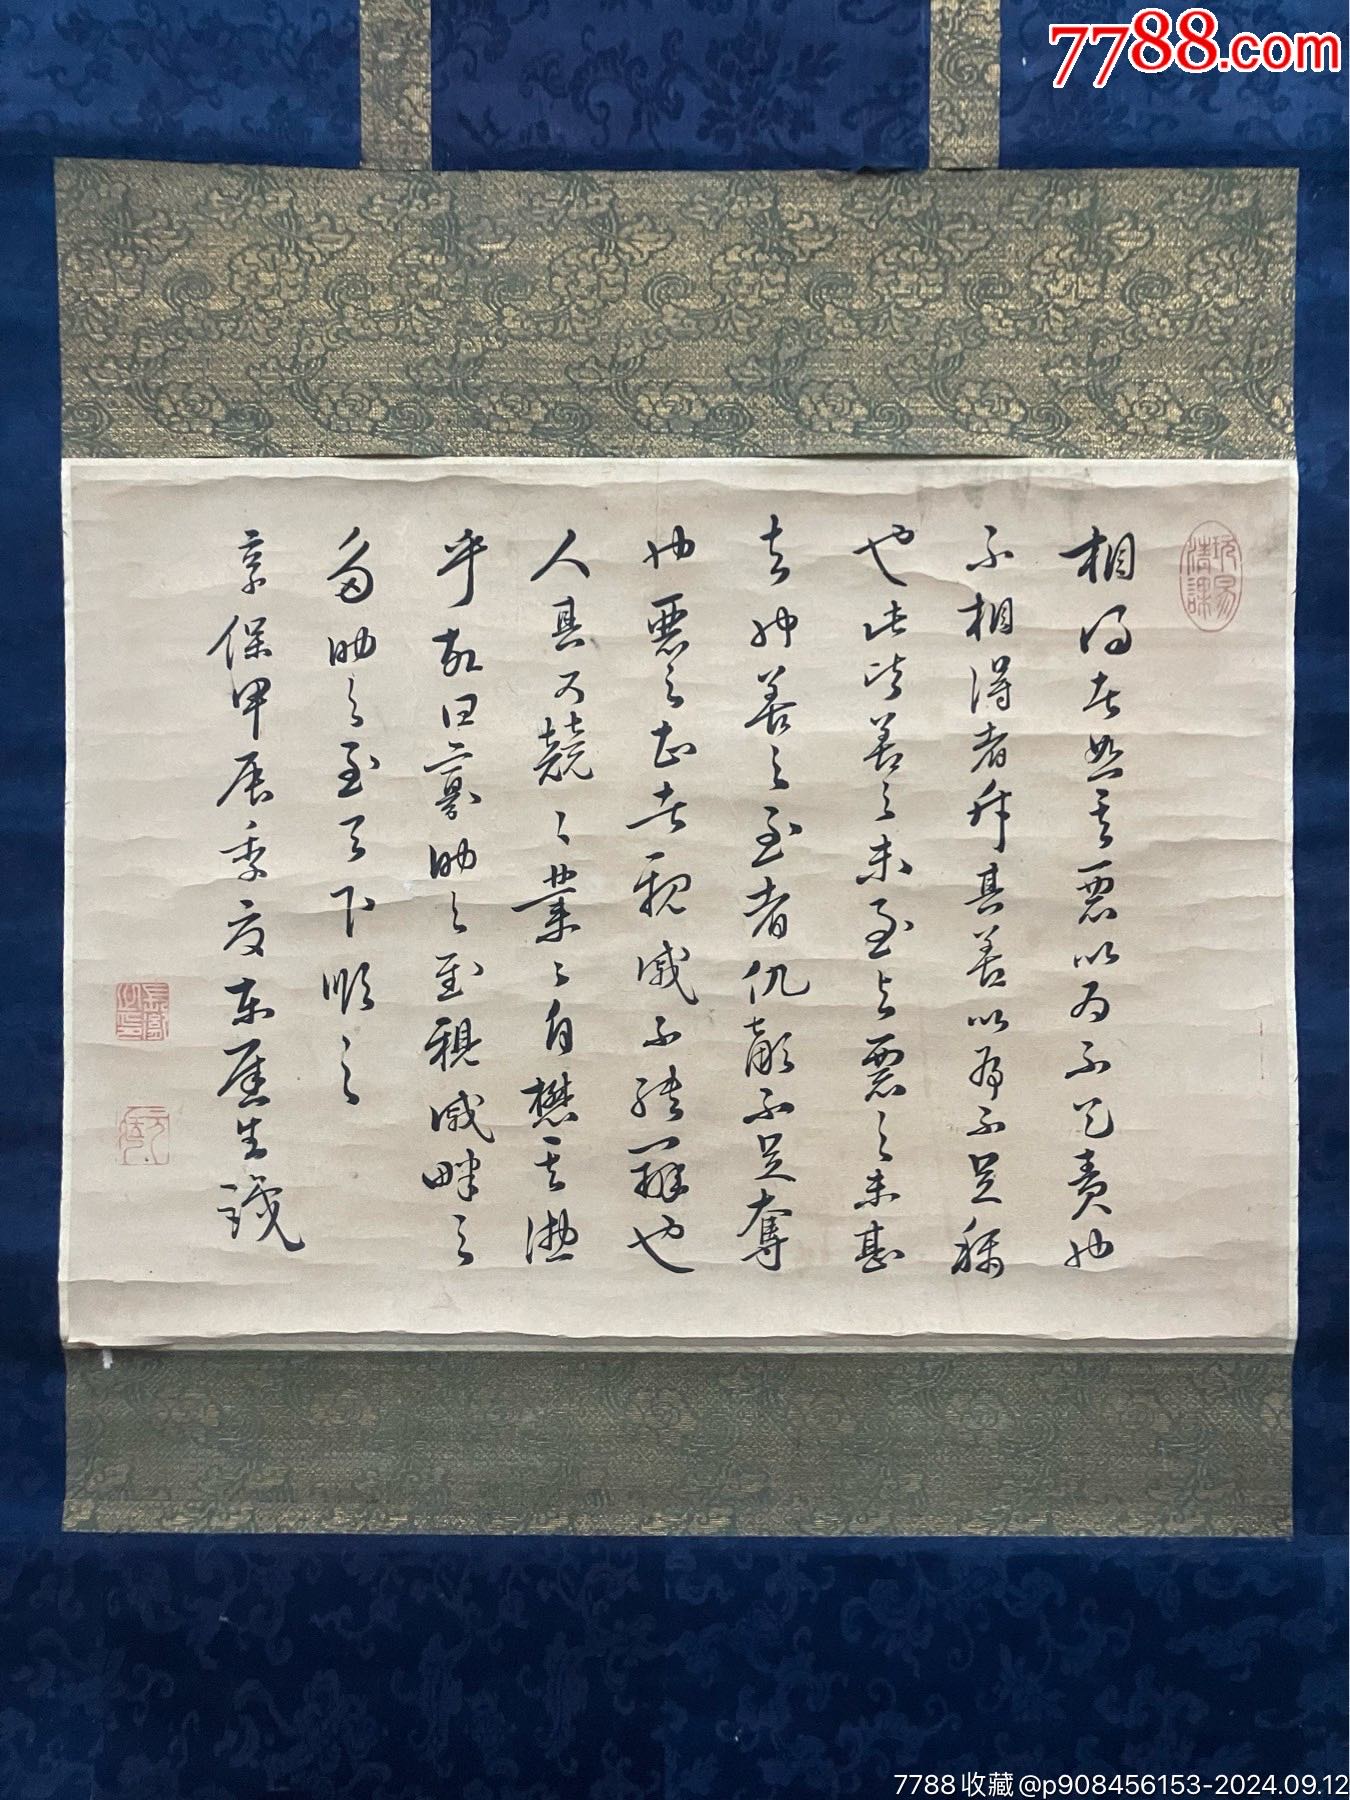 7788.com
相得者恕其惡以为不足責也
不相得者舛其善以为不足稱
也此皆善之未至与惡之未甚
者也善之至者仇敵不足奪
也惡之甚者親戚不能辭也
人其可競々業々自懋其德
乎故曰寡助之至親戚畔之
多助之至天下順之
享保甲辰季夏東厓生識
7788收藏@p908456153-2024.09.12